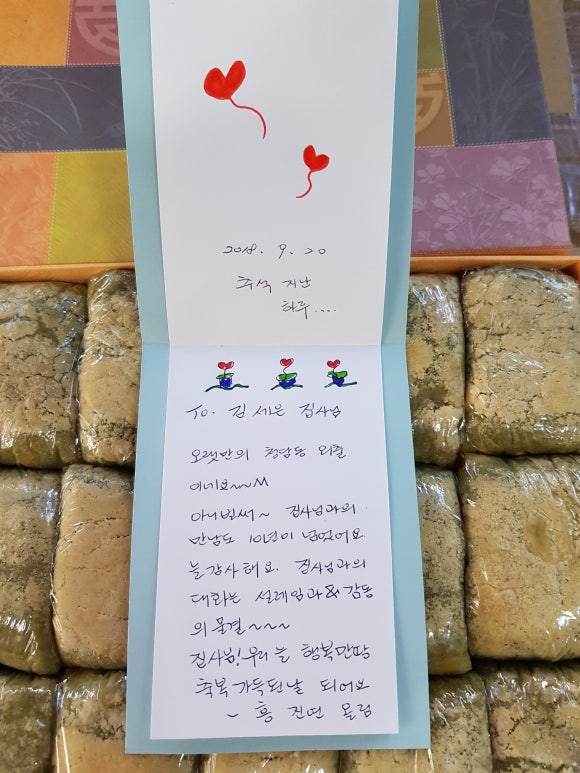 2018. 9. 20
추석 지난
하루....
To. 김세은 집사님
오랫만의 청담동 외출
이네요~~^^
아니벌써~ 집사님과의
만남도 10년이 넘었어요
늘감사해요. 집사님과의
대화는 설레임과&감동
의 물결~~~
집사님! 우리늘 행복만땅
축복가득된날 되어요
~ 홍 진연 올림